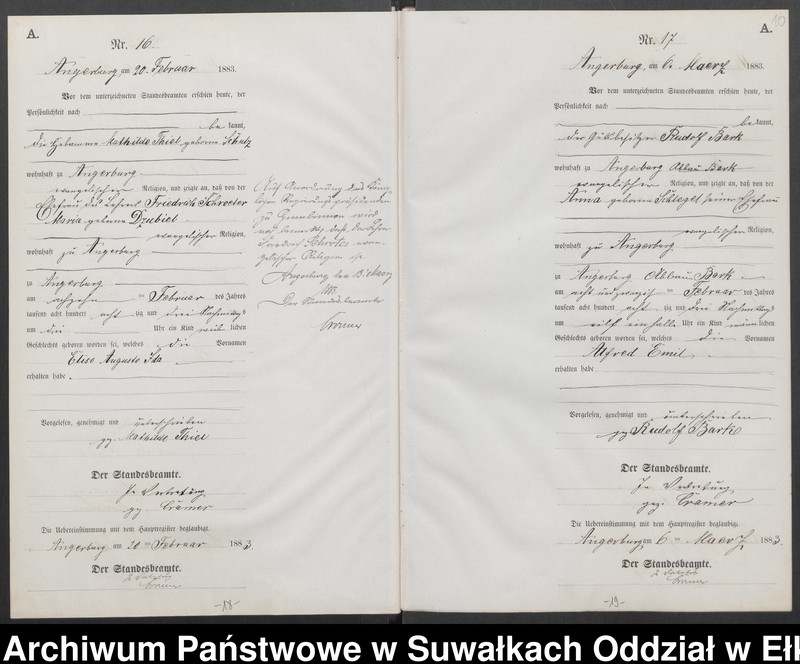 A.
Nr. 16
Angerburg am 20. Februar 1883.
Vor dem unterzeichneten Standesbeamten erschien heute, der
Persönlichkeit nach
be kannt,
die Hebamme Mathilde Thiel geborne Schulz
wohnhaft zu Angerburg
evangelischer Religion, und zeigte an, daß von der
Ehefrau des Lehrers Friedrich Schroeter
Maria geborne Dzubiel
evangelischer Religion,
wohnhaft zu Angerburg
zu Angerburg
am achtzehn ten Februar des Jahres
tausend acht hundert acht zig und drei Nachmittags
um drei Uhr ein Kind weib lichen
Geschlechts geboren worden sei, welches die Vornamen
Elise Auguste Ida
erhalten habe.
Vorgelesen, genehmigt und unterschrieben
gez Mathilde Thiel
Der Standesbeamte.
In Vertretung
gez Cramer
Die Uebereinstimmung mit dem Hauptregister beglaubigt.
Angerburg am 20 ten Februar 1883.
Der Standesbeamte.
In Vertretung
Cramer
-18-
Auf Anordnung des König
lichen Regierungspräsidenten
zu Gumbinnen wird
daß der
Schroeter evan
gelischer Religion ist.
Angerburg den
Der Standesbeamte
Cramer
10
A.
Nr. 17
Angerburg, am 6. Maerz 1883.
Vor dem unterzeichneten Standesbeamten erschien heute, der
Persönlichkeit nach
be kannt,
der Gutsbesitzer Rudolf Bark
wohnhaft zu Angerburg Abbau Bark
evangelischer Religion, und zeigte an, daß von der
Anna geborne Schlegel seiner Ehefrau
evangelischer Religion,
wohnhaft zu Angerburg
zu Angerburg Abbau Bark
am acht und zwanzig ten Februar des Jahres
tausend acht hundert acht zig und drei Nachmittags
um elf einhalb Uhr ein Kind männ lichen
Geschlechts geboren worden sei, welches die Vornamen
Alfred Emil
erhalten habe
Vorgelesen, genehmigt und unterschrieben
gez Rudolf Bark
Der Standesbeamte.
In Vertretung
gez. Cramer
Die Uebereinstimmung mit dem Hauptregister beglaubigt.
Angerburg, am 6 ten Maerz 1883.
Der Standesbeamte.
In Vertretung
Cramer
-19-
Archiwum Państwowe w Suwałkach Oddział w Ełk